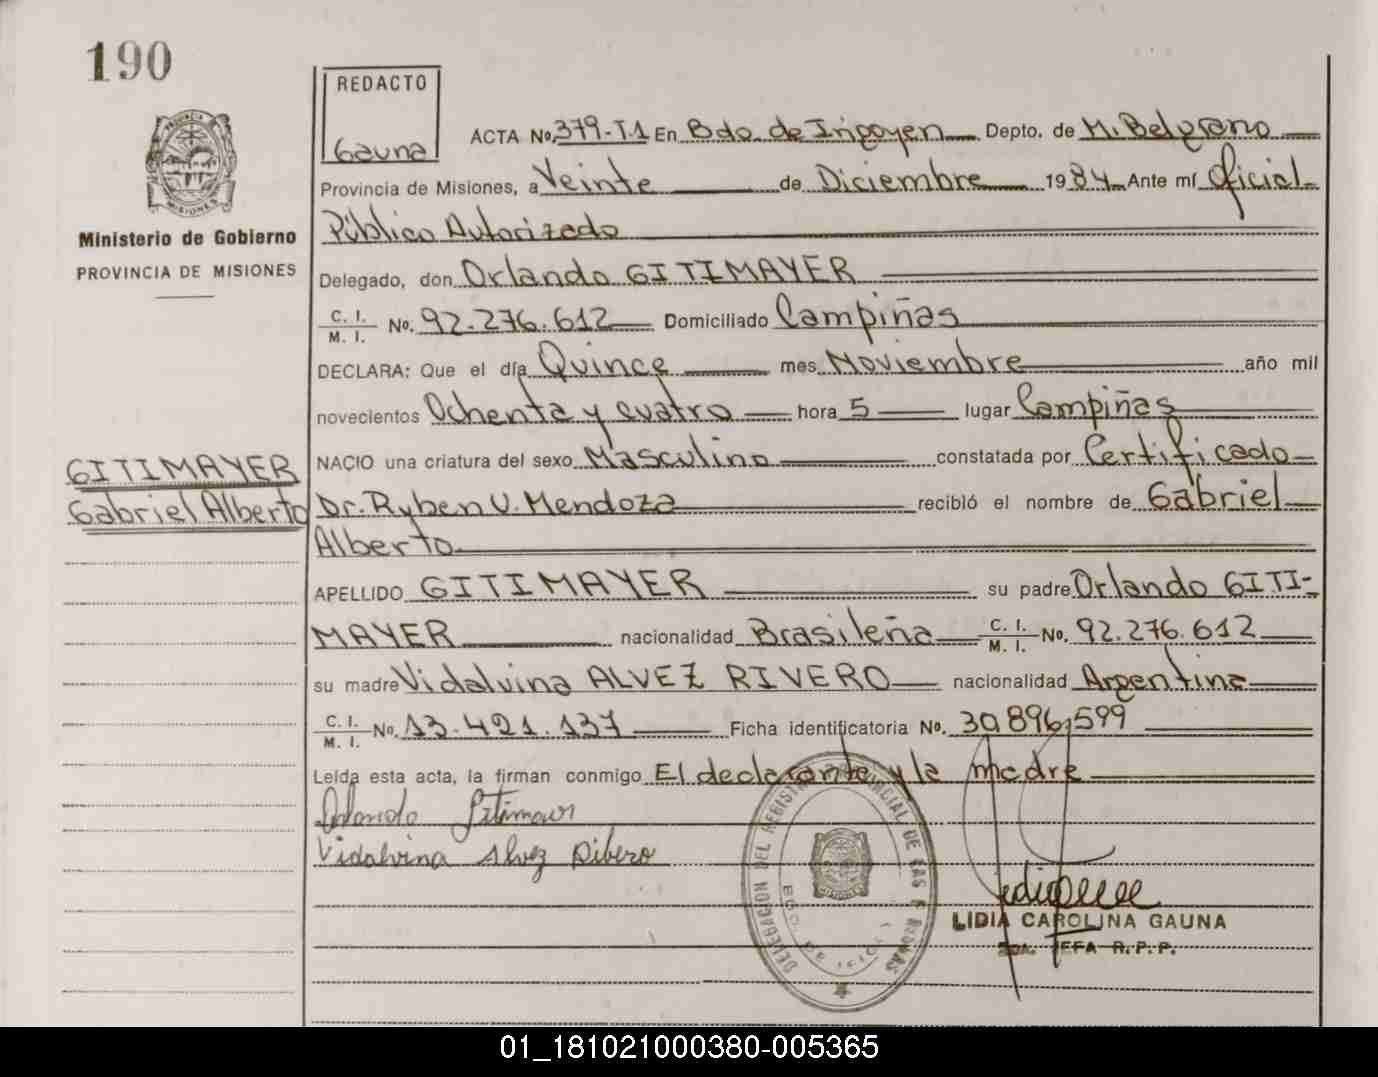 190
REDACTO
Gauna
PROVINCIA DE MISIONES
Ministerio de Gobierno
PROVINCIA DE MISIONES
ACTA No. 379-T.1 En Bdo. de Irigoyen Depto. de M. Belgrano
Provincia de Misiones, a Veinte de Diciembre 1984 Ante mí Oficial
Público Autorizado
Delegado, don Orlando GITIMAYER
C. I. M. I. No. 92.276.612 Domiciliado Campiñas
DECLARA: Que el día Quince mes Noviembre año mil
novecientos Ochenta y cuatro hora 5 lugar Campiñas
NACIO una criatura del sexo Masculino constatada por Certificado
Dr. Ryben V. Mendoza recibió el nombre de Gabriel
Alberto
APELLIDO GITIMAYER su padre Orlando GITI-
MAYER nacionalidad Brasileña C. I. M. I. No. 92.276.612
su madre Vidalvina ALVEZ RIVERO nacionalidad Argentina
C. I. M. I. No. 13.421.137 Ficha identificatoria No. 30.896.599
Leída esta acta, la firman conmigo El declarante y la madre
GITIMAYER
Gabriel Alberto
Orlando Gitimaier
Vidalvina Alvez Ribero
DELEGACION DEL REGISTRO PROVINCIAL DE LAS PERSONAS
BDO. DE IRIGOYEN
LIDIA CAROLINA GAUNA
2DA. JEFA R.P.P.
01_181021000380-005365